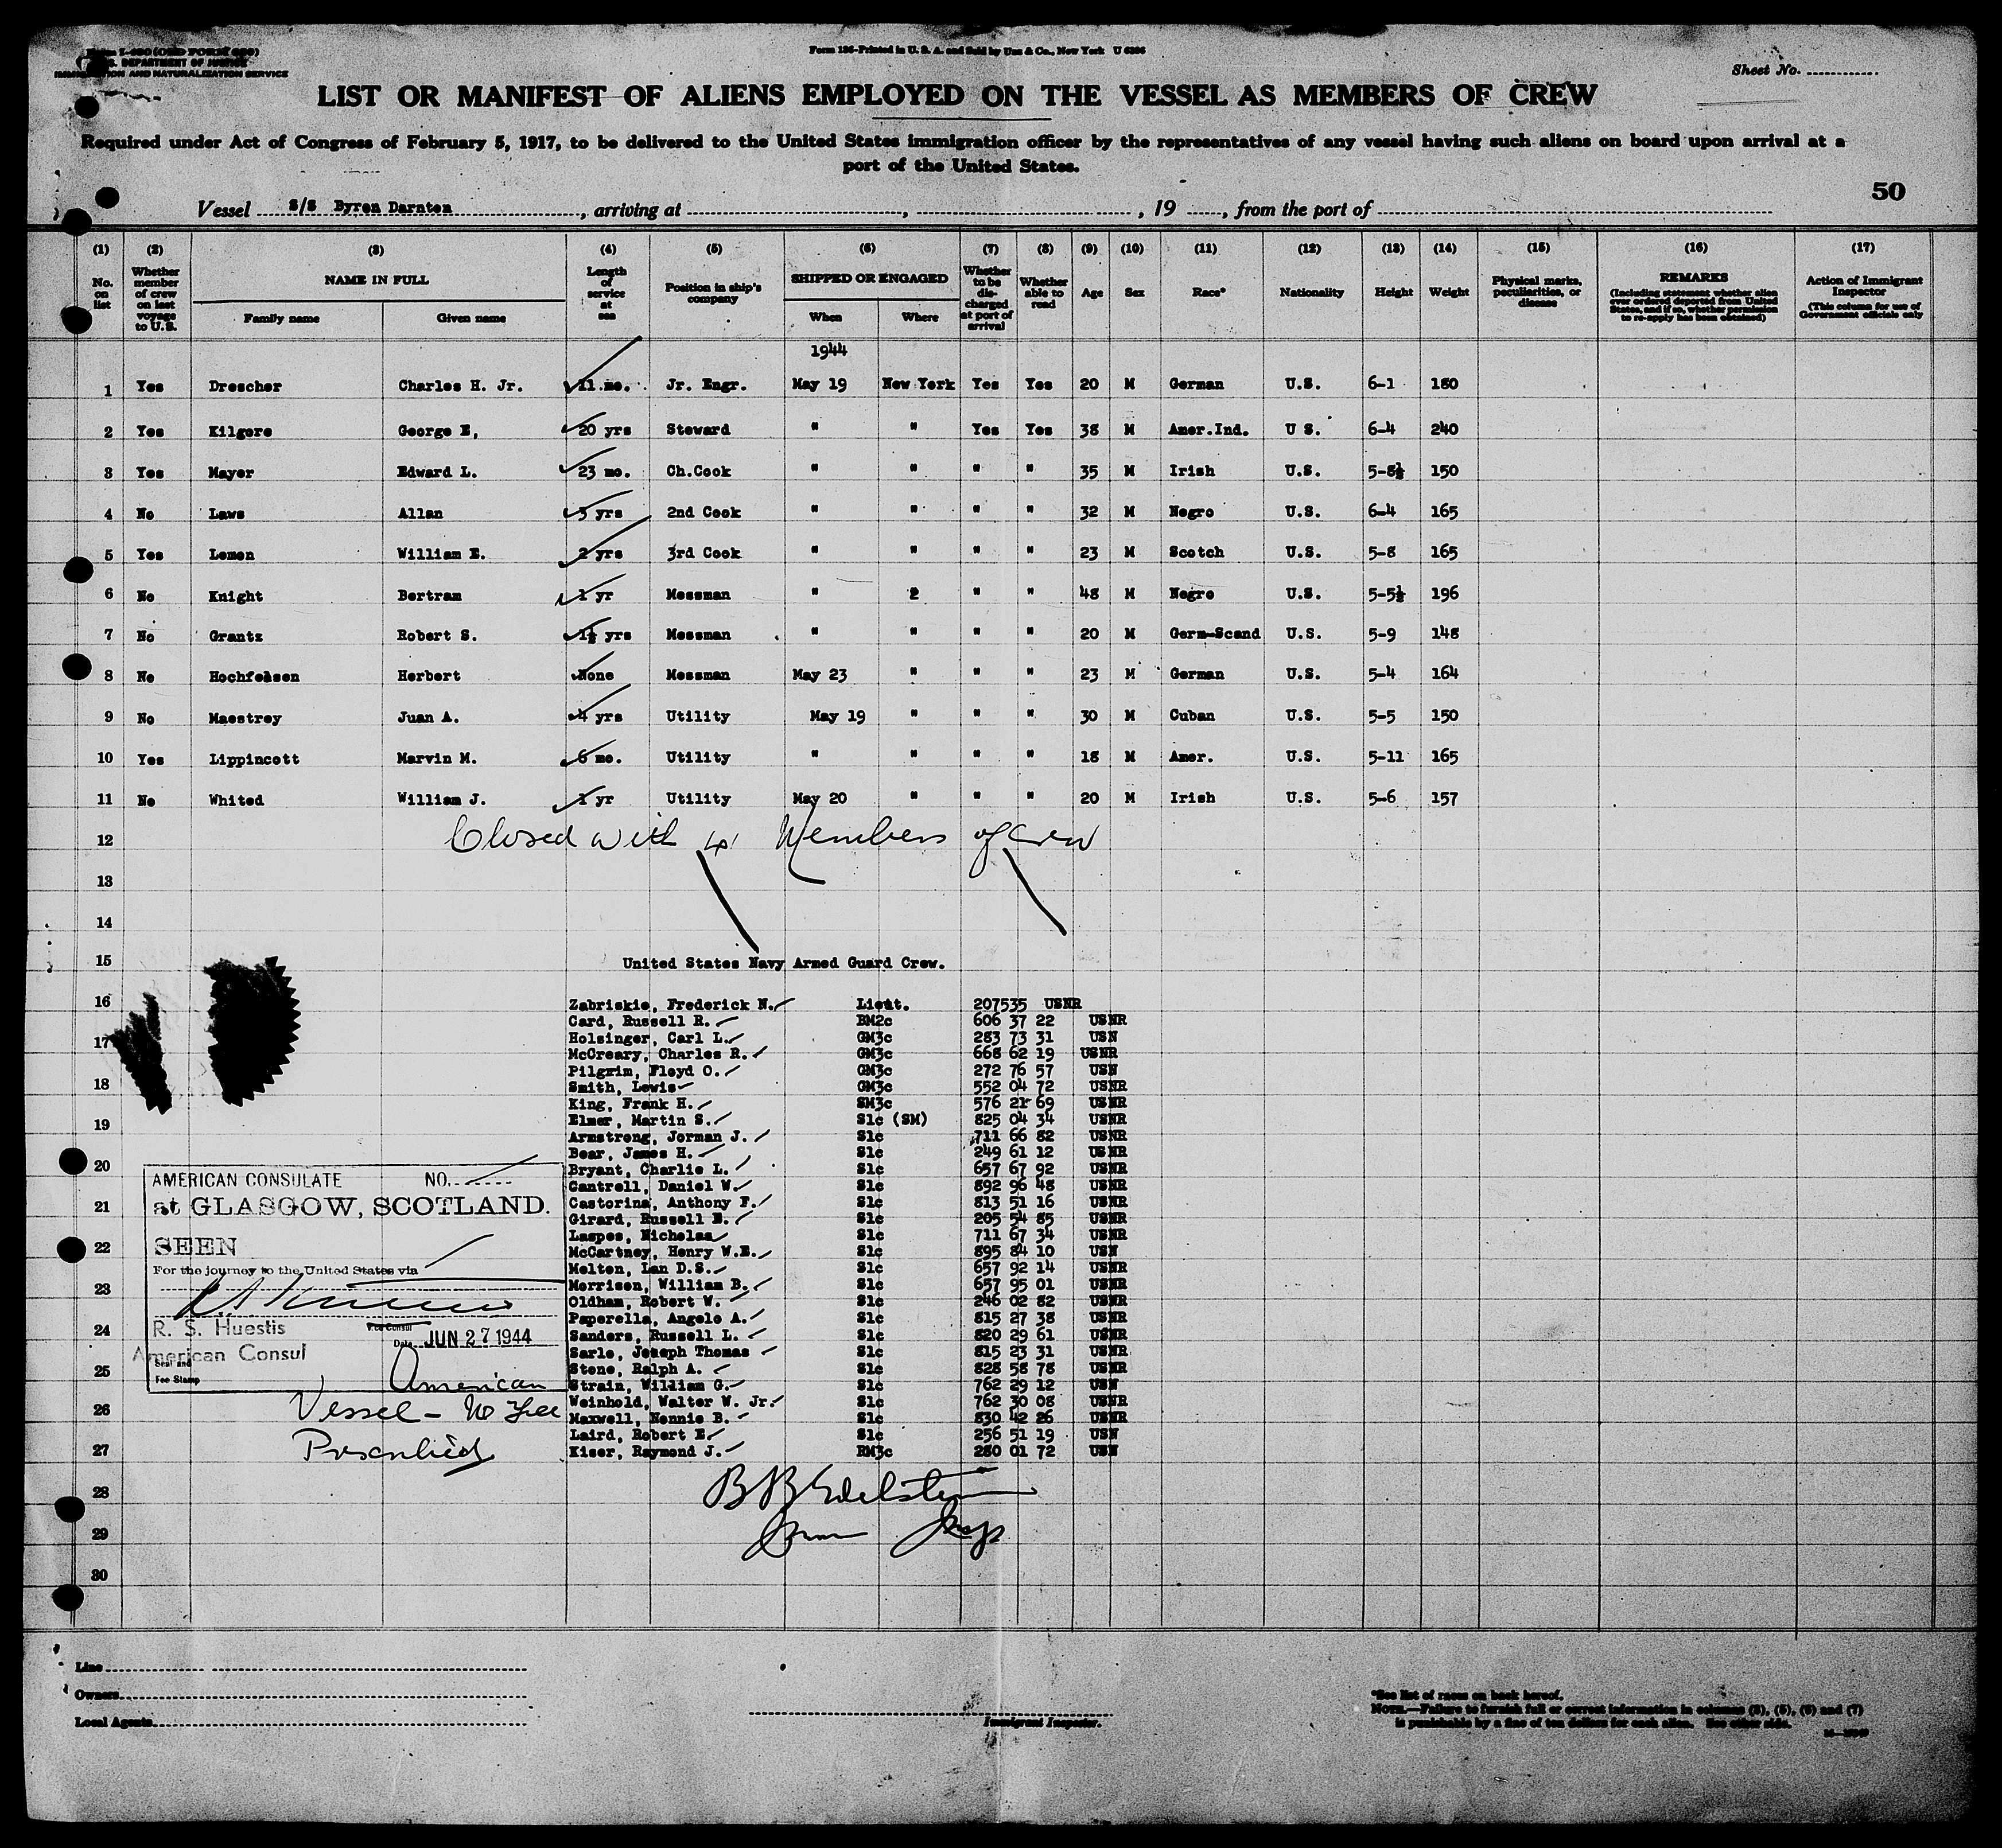 Form I-480 (OLD FORM 680)
U. S. DEPARTMENT OF JUSTICE
IMMIGRATION AND NATURALIZATION SERVICE
Form 126-Printed in U. S. A. and Sold by Unz & Co., New York
Sheet No.
LIST OR MANIFEST OF ALIENS EMPLOYED ON THE VESSEL AS MEMBERS OF CREW
Required under Act of Congress of February 5, 1917, to be delivered to the United States immigration officer by the representatives of any vessel having such aliens on board upon arrival at a
port of the United States.
50
Vessel S/S Byron Darnton, arriving at , , 19 , from the port of
(1) (2) (3) (4) (5) (6) (7) (8) (9) (10) (11) (12) (13) (14) (15) (16) (17)
No. on list Whether member of crew on last voyage to U.S. NAME IN FULL Family name Given name Length of service at sea Position in ship's company SHIPPED OR ENGAGED When Where Whether to be discharged at port of arrival Whether able to read Age Sex Race* Nationality Height Weight Physical marks, peculiarities, or disease REMARKS (Including statement whether alien ever ordered deported from United States, and if so, whether permission to re-apply has been obtained) Action of Immigrant Inspector (This column for use of Government officials only
1944
1 Yes Drescher Charles H. Jr. 11 mo. Jr. Engr. May 19 New York Yes Yes 20 M German U.S. 6-1 180
2 Yes Kilgore George E, 20 yrs Steward " " Yes Yes 38 M Amer.Ind. U S. 6-4 240
3 Yes Mayer Edward L. 23 mo. Ch.Cook " " " " 35 M Irish U.S. 5-8½ 150
4 No Laws Allan 5 yrs 2nd Cook " " " " 32 M Negro U.S. 6-4 165
5 Yes Lemon William E. 2 yrs 3rd Cook " " " " 23 M Scotch U.S. 5-8 165
6 No Knight Bertram 1 yr Messman " 2 " " 48 M Negro U.S. 5-5½ 196
7 No Grantz Robert S. 1½ yrs Messman " " " " 20 M Germ-Scand U.S. 5-9 148
8 No Hochfelsen Herbert None Messman May 23 " " " 23 M German U.S. 5-4 164
9 No Maestrey Juan A. 4 yrs Utility May 19 " " " 30 M Cuban U.S. 5-5 150
10 Yes Lippincott Marvin M. 6 mo. Utility " " " " 18 M Amer. U.S. 5-11 165
11 No Whited William J. 1 yr Utility May 20 " " " 20 M Irish U.S. 5-6 157
12 Closed with 41 Members of Crew
13
14
15 United States Navy Armed Guard Crew.
16 Zabriskie, Frederick N. Lieut. 207535 USNR
Card, Russell R. BM2c 606 37 22 USNR
17 Holsinger, Carl L. GM3c 283 73 31 USN
McCreary, Charles R. GM3c 668 62 19 USNR
Pilgrim, Floyd O. GM3c 272 76 57 USN
18 Smith, Lewis GM3c 552 04 72 USNR
King, Frank H. SM3c 576 21 69 USNR
19 Elmer, Martin S. S1c (SM) 825 04 34 USNR
Armstrong, Jorman J. S1c 711 66 82 USNR
Bear, James H. S1c 249 61 12 USNR
20 Bryant, Charlie L. S1c 657 67 92 USNR
Cantrell, Daniel W. S1c 892 96 48 USNR
21 Castorina, Anthony F. S1c 813 51 16 USNR
Girard, Russell E. S1c 205 54 85 USNR
Laspes, Nicholas S1c 711 67 34 USNR
22 McCartney, Henry W.E. S1c 895 84 10 USN
Melton, Lan D.S. S1c 657 92 14 USNR
23 Morrison, William B. S1c 657 95 01 USNR
Oldham, Robert W. S1c 246 02 82 USNR
Paperella, Angelo A. S1c 815 27 38 USNR
24 Sanders, Russell L. S1c 820 29 61 USNR
Sarle, Joseph Thomas S1c 815 23 31 USNR
25 Stone, Ralph A. S1c 828 58 78 USNR
Strain, William G. S1c 762 29 12 USN
26 Weinhold, Walter W. Jr. S1c 762 30 08 USNR
Maxwell, Nonnie B. S1c 830 42 26 USNR
Laird, Robert E. S1c 256 51 19 USN
27 Kiser, Raymond J. RM3c 280 01 72 USN
28
29
30
AMERICAN CONSULATE NO.
at GLASGOW, SCOTLAND.
SEEN
For the journey to the United States via
R. S. Huestis Vice Consul
American Consul Date JUN 27 1944
Seal and
Fee Stamp
American
Vessel - No Fee
Prescribed
B B Edelstein
Line
Owners
Local Agents
Immigrant Inspector.
*See list of races on back hereof.
NOTE.—Failure to furnish full or correct information in columns (3), (5), (6) and (7)
is punishable by a fine of ten dollars for each alien. See other side.